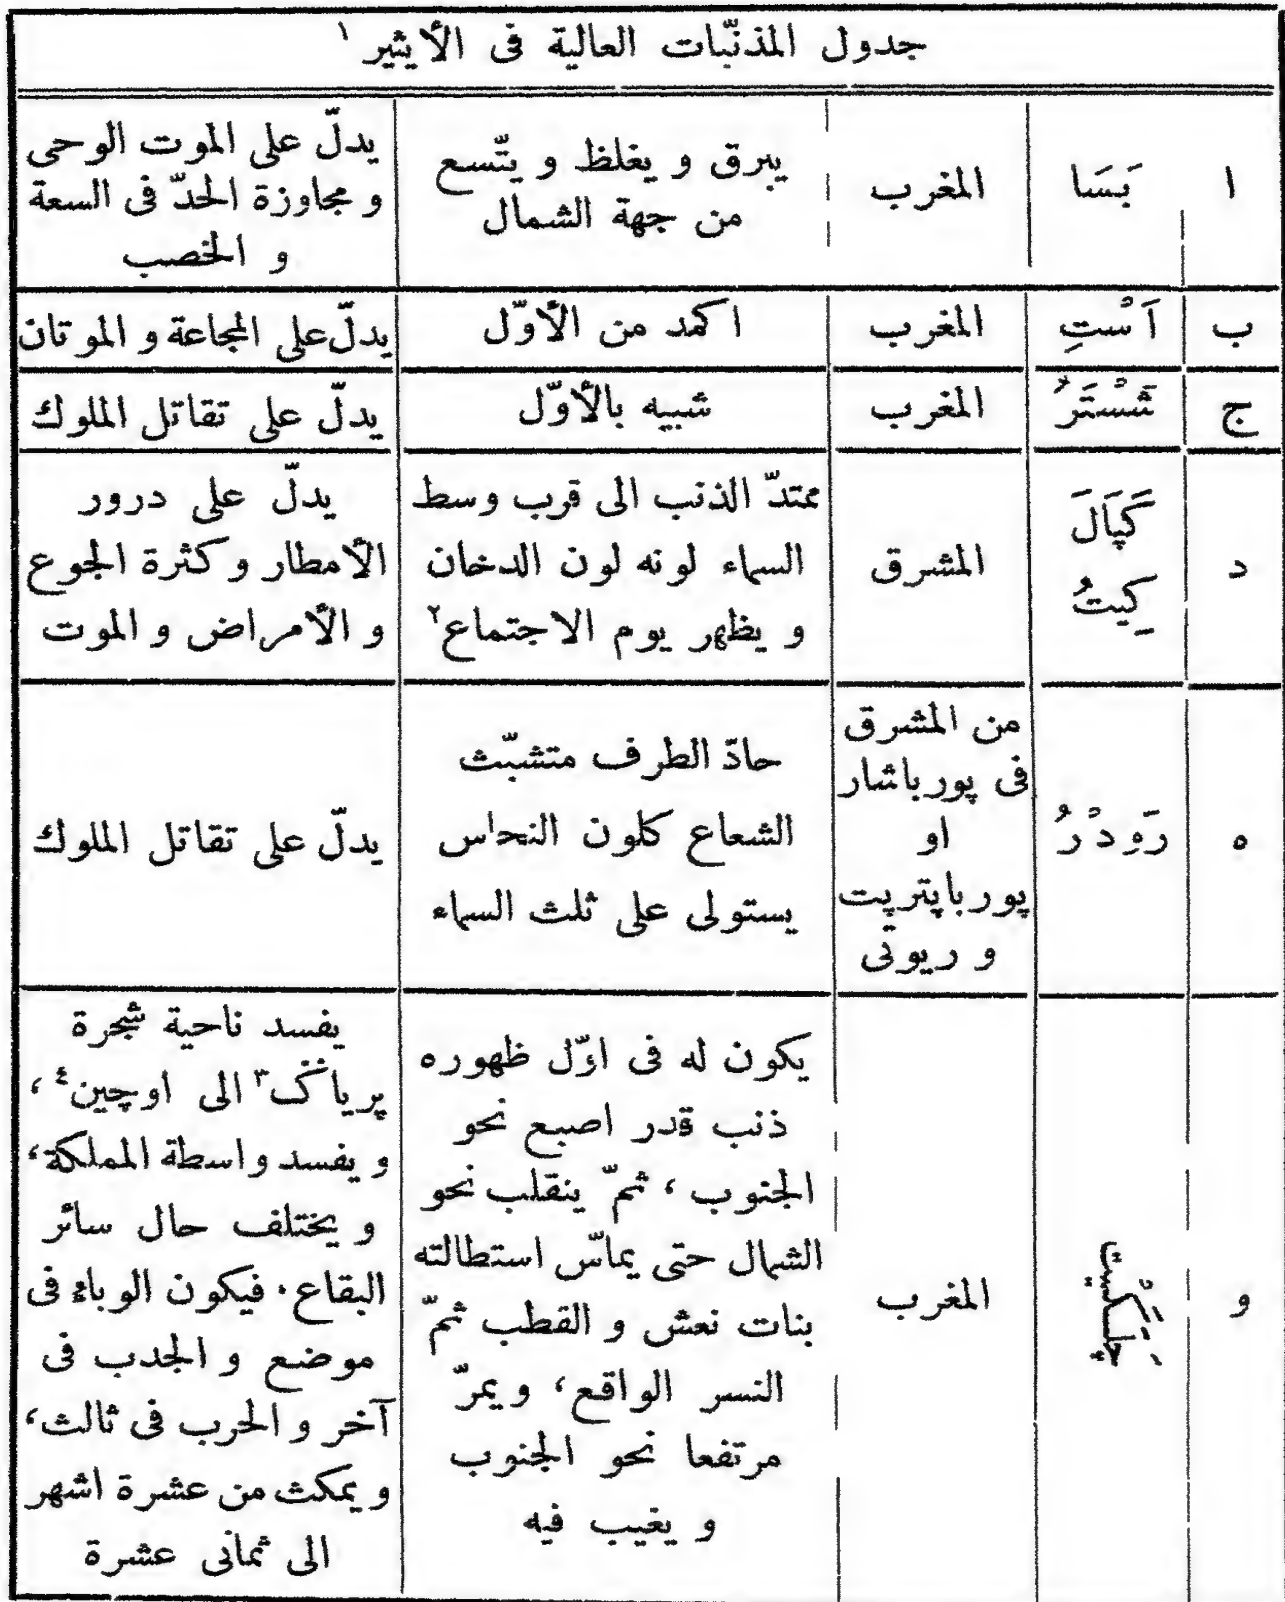 جدول المذنّبات العالية فى الأيثير ١
ا
بَسَا
المغرب
يبرق و يغلظ و يتّسع
من جهة الشمال
يدلّ على الموت الوحى
و مجاوزة الحدّ فى السعة
و الخصب
ب
اَسْتِ
المغرب
اكمد من الأوّل
يدلّ على المجاعة و الموتان
ج
شَسْتَرُ
المغرب
شبيه بالأوّل
يدلّ على تقاتل الملوك
د
كَپَالَ
كِيتُ
المشرق
ممتدّ الذنب الى قرب وسط
السماء لونه لون الدخان
و يظهر يوم الاجتماع ٢
يدلّ على درور
الأمطار و كثرة الجوع
و الأمراض و الموت
ه
رَودْرُ
من المشرق
فى پورباشار
او
پورباپتريت
و ريوتى
حادّ الطرف متشبّث
الشعاع كلون النحاس
يستولى على ثلث السماء
يدلّ على تقاتل الملوك
و
المغرب
يكون له فى اوّل ظهوره
ذنب قدر اصبع نحو
الجنوب ، ثمّ ينقلب نحو
الشمال حتى يماسّ استطالته
بنات نعش و القطب ثمّ
النسر الواقع ، و يمرّ
مرتفعا نحو الجنوب
و يغيب فيه
يفسد ناحية شجرة
پرياݣ ٣ الى اوچين ٤ ،
و يفسد واسطة المملكة ،
و يختلف حال سائر
البقاع . فيكون الوباء فى
موضع و الجدب فى
آخر و الحرب فى ثالث ،
و يمكث من عشرة اشهر
الى ثمانى عشرة